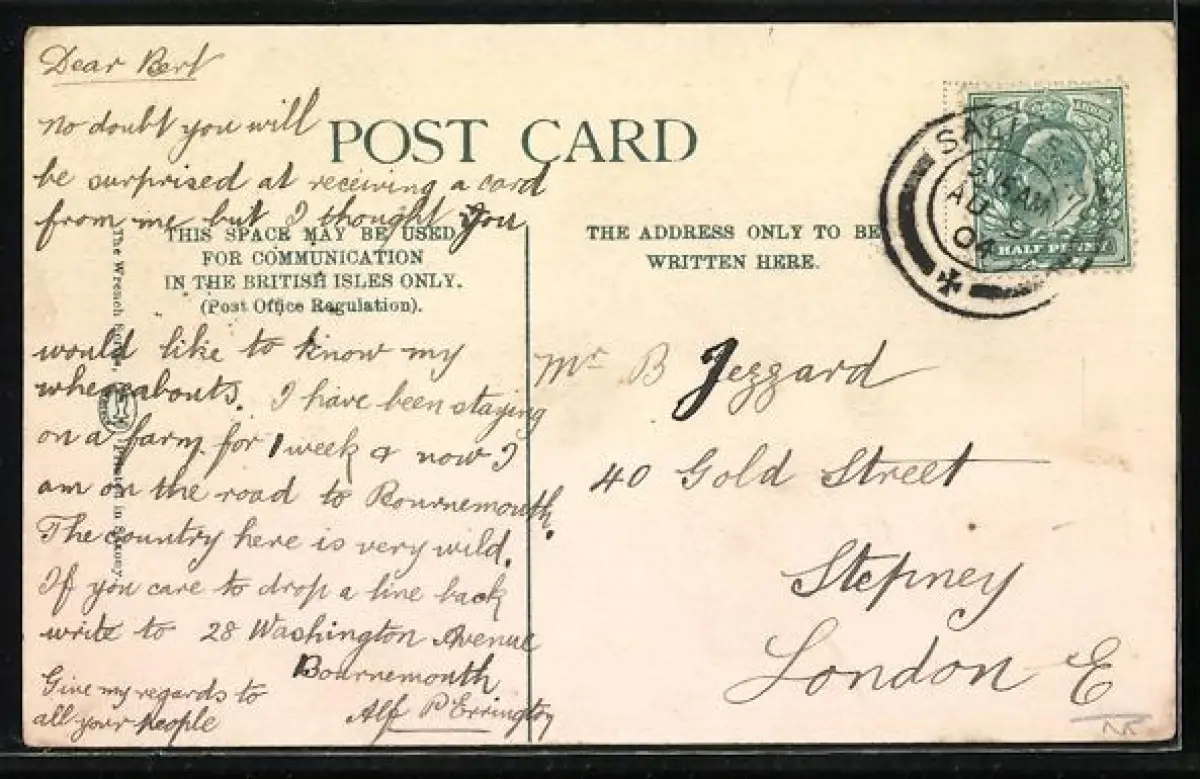 Dear Bert
no doubt you will
be surprised at receiving a card
from me but I thought you
would like to know my
whereabouts. I have been staying
on a farm for 1 week & now I
am on the road to Bournemouth.
The country here is very wild.
If you care to drop a line back
write to 28 Washington Avenue
Bournemouth
Give my regards to
all your people
Alf P Errington
POST CARD
THIS SPACE MAY BE USED
FOR COMMUNICATION
IN THE BRITISH ISLES ONLY.
(Post Office Regulation).
THE ADDRESS ONLY TO BE
WRITTEN HERE.
The Wrench
Printed in Saxony
SALI
AM
AU
04
HALF PENNY
Mr B Jeggard
40 Gold Street
Stepney
London E